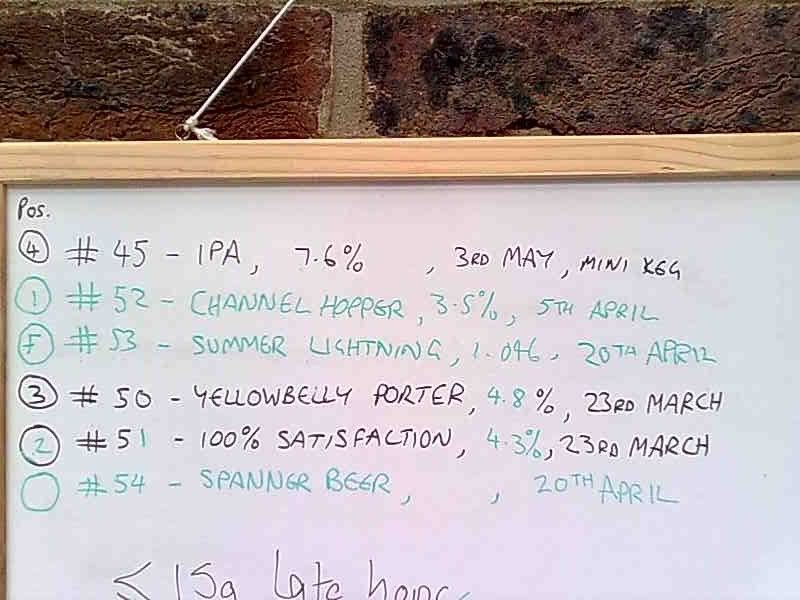 Pos.
4 # 45 - IPA, 7.6% , 3RD MAY, MINI KEG
1 # 52 - CHANNEL HOPPER, 3.5%, 5TH APRIL
F # 53 - SUMMER LIGHTNING, 1.046, 20TH APRIL
3 # 50 - YELLOWBELLY PORTER, 4.8%, 23RD MARCH
2 # 51 - 100% SATISFACTION, 4.3%, 23RD MARCH
# 54 - SPANNER BEER, , 20TH APRIL
< 15g late hops